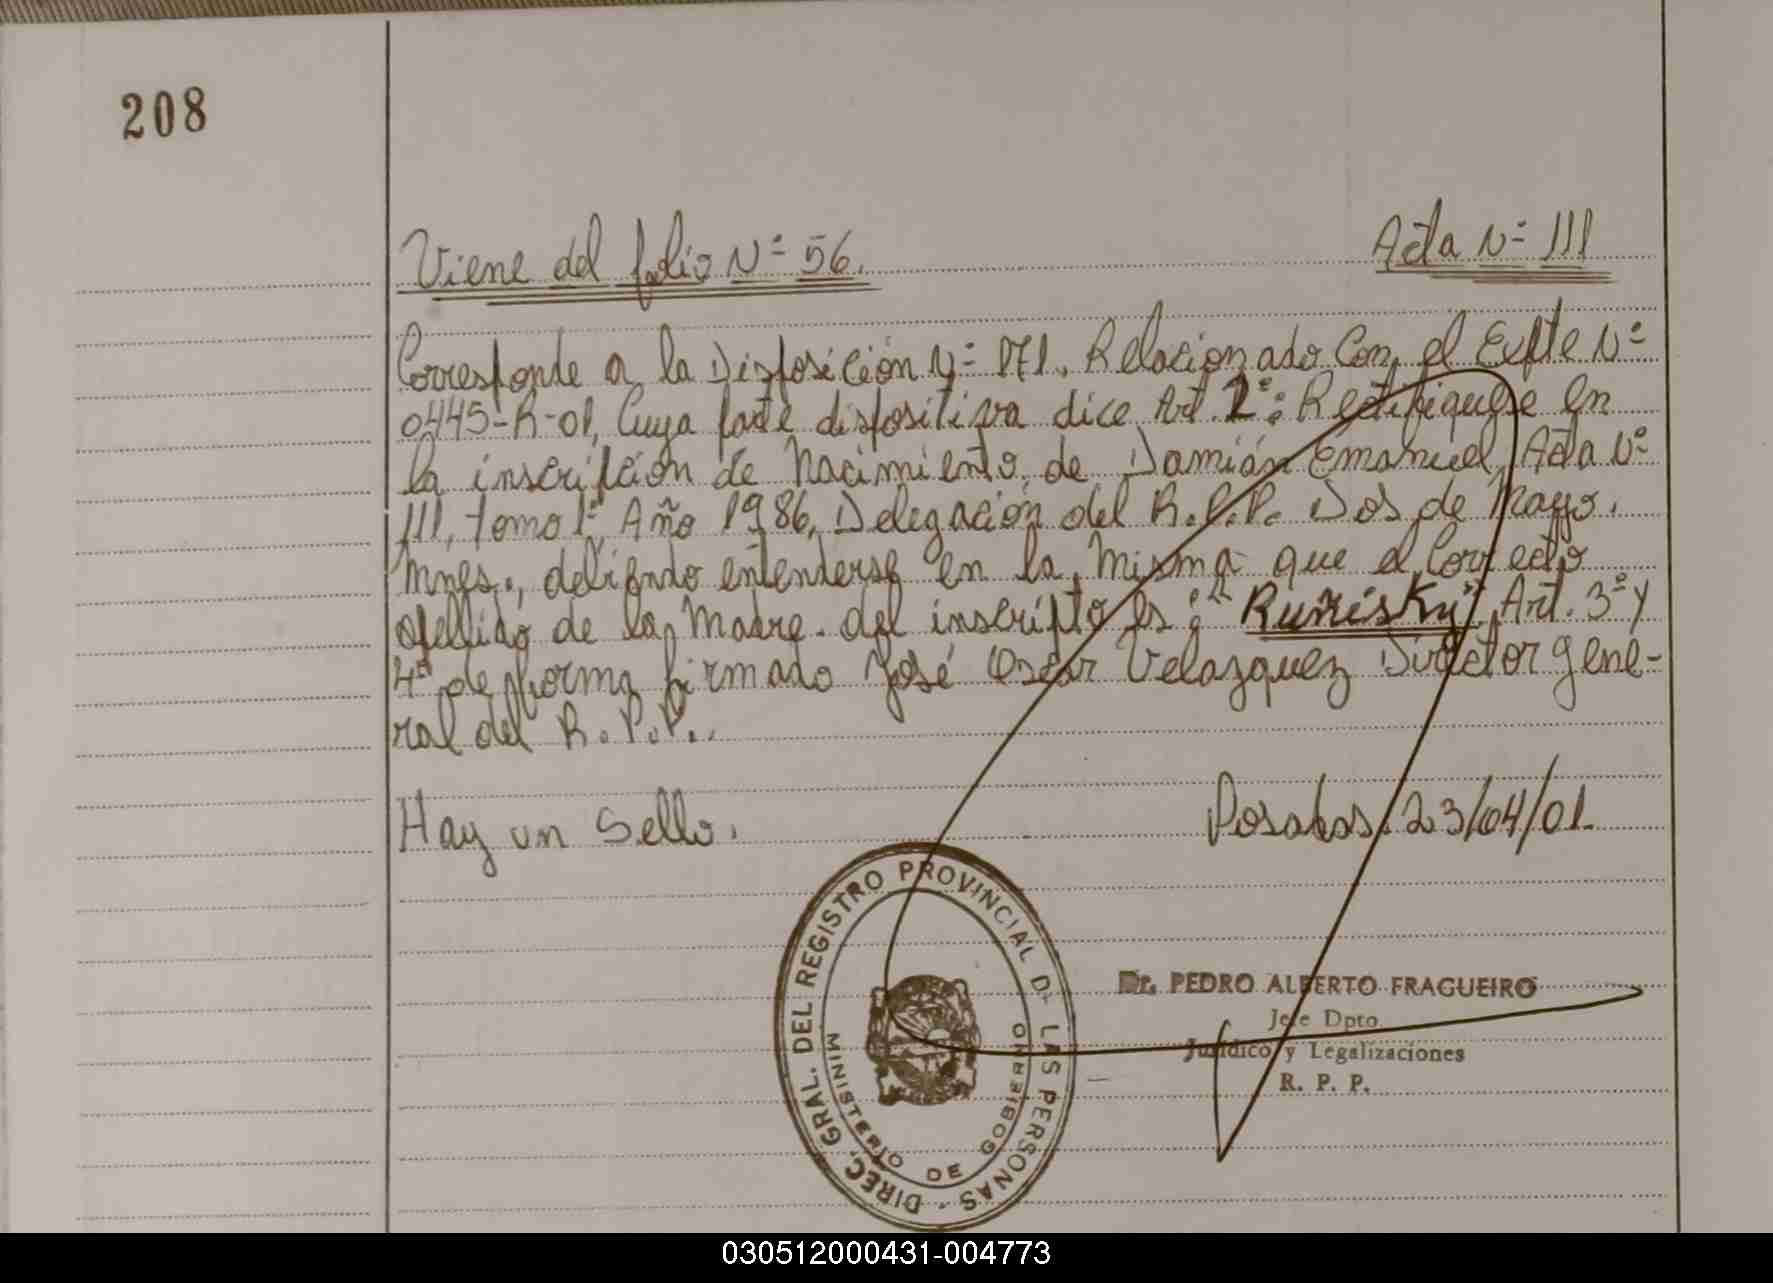 208
Viene del folio Nº 56.
Acta Nº 111
Corresponde a la Disposición Nº 171. Relacionado Con el Expte Nº
0445-R-01, Cuya parte dispositiva dice Art. 2º: Rectifiquese en
la inscripción de Nacimiento de Damián Emanuel, Acta Nº
111, tomo 1º, Año 1986, Delegación del R.P.P. Dos de Mayo.
Mnes., debiendo entenderse en la Misma que el Correcto
apellido de la Madre del inscripto es: "Ruñisky" Art. 3º y
4º de forma firmado José Oscar Velazquez Director gene-
ral del R.P.P..
Hay un Sello.
Posadas. 23/04/01
DIREC. GRAL. DEL REGISTRO PROVINCIAL DE LAS PERSONAS
MINISTERIO DE GOBIERNO
Dr. PEDRO ALBERTO FRAGUEIRO
Jefe Dpto.
Jurídico y Legalizaciones
R. P. P.
030512000431-004773